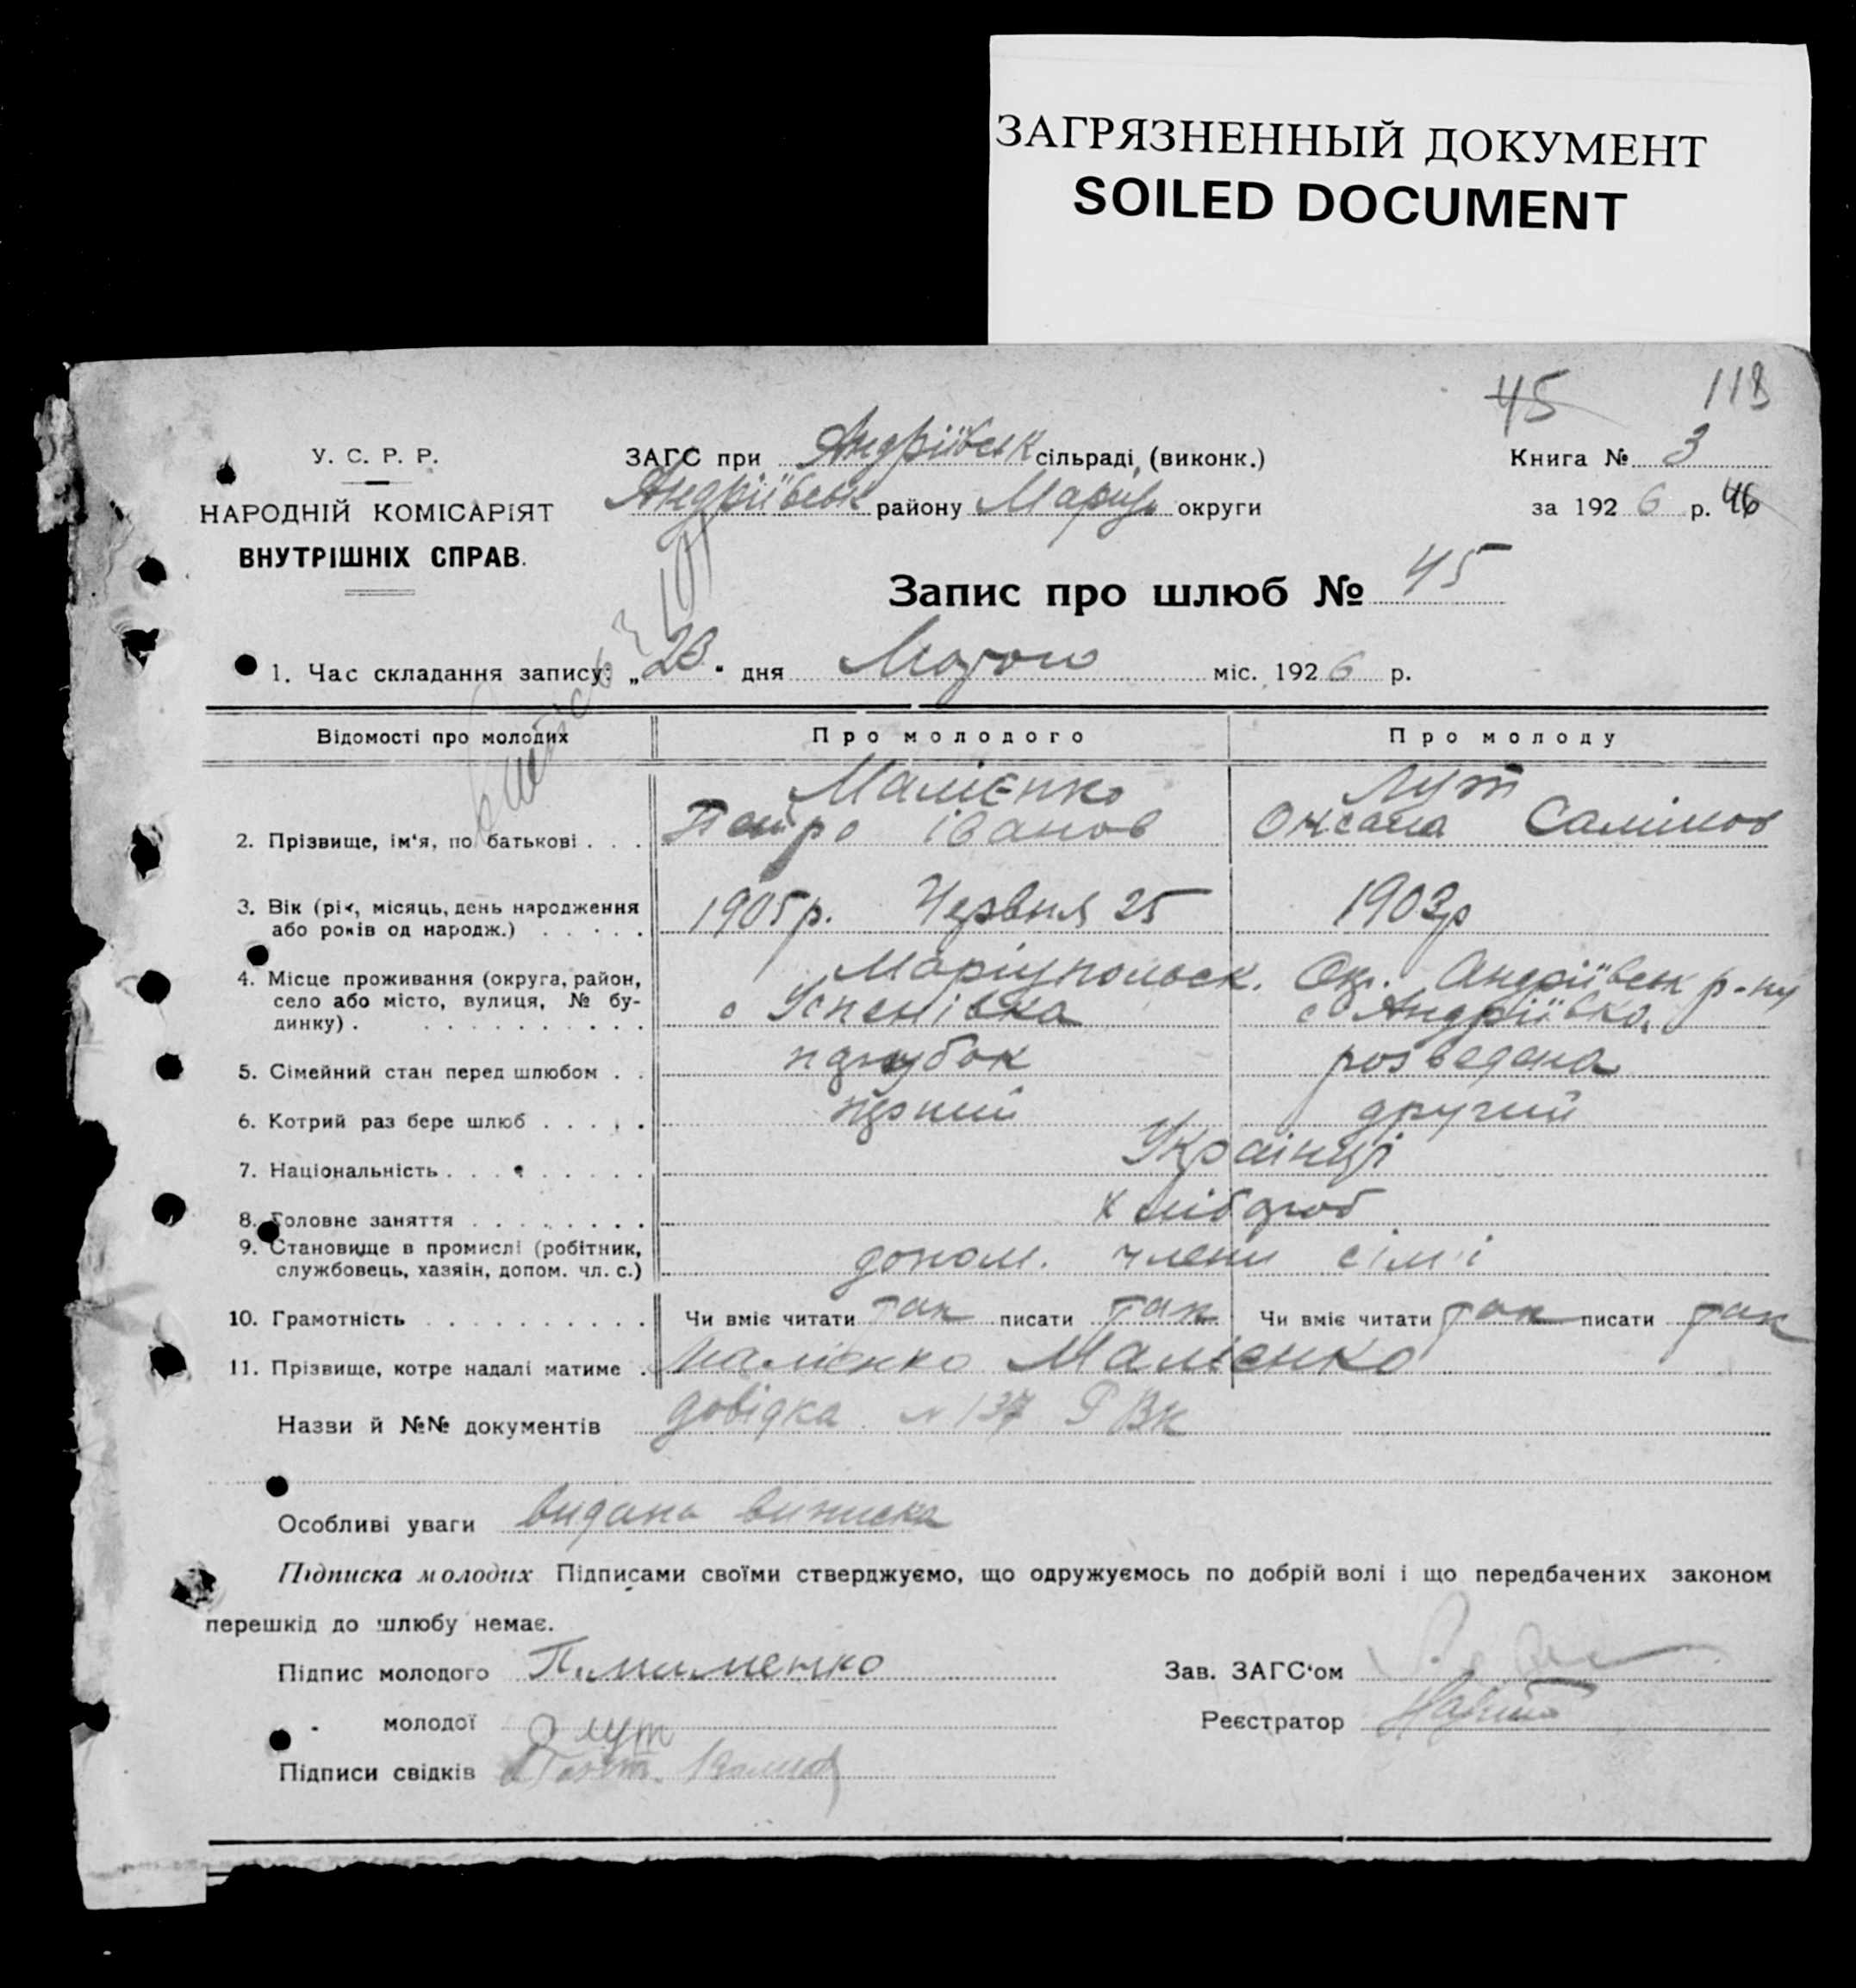 ЗАГРЯЗНЕННЫЙ ДОКУМЕНТ
SOILED DOCUMENT
45 113
У. С. Р. Р.
НАРОДНІЙ КОМІСАРІЯТ
ВНУТРІШНІХ СПРАВ.
ЗАГС при Андріївськ сільраді, (виконк.)
Андріївськ району Маріуп округи
Книга № 3
за 1926 р. 46
Запис про шлюб № 45
1. Час складання запису: „23" дня Лютого міс. 1926 р.
Відомості про молодих Про молодого Про молоду
Малієнко Лут
2. Прізвище, ім'я, по батькові . . . Петро Іванов Оксана
3. Вік (рік, місяць, день народження
або років од народж.) . . . . . 1905р. Червня 25 1903р
4. Місце проживання (округа, район, Маріупольск. Окр. Андріївськ р-ну
село або місто, вулиця, № бу-
динку) . . . . . . . . . . . с Успенівка с Андріївка
5. Сімейний стан перед шлюбом . . парубок розведена
6. Котрий раз бере шлюб . . . . . перший другий
7. Національність . . . . . . . . Українці
8. Головне заняття . . . . . . . . Хлібороб
9. Становище в промислі (робітник,
службовець, хазяін, допом. чл. с.) допом. члени сім'ї
10. Грамотність . . . . . . . . . . Чи вміє читати так писати так Чи вміє читати так писати так
11. Прізвище, котре надалі матиме . Малієнко Малієнко
Назви й №№ документів довідка № 137 РВК
Особливі уваги видана виписка
Підписка молодих Підписами своїми стверджуємо, що одружуємось по добрій волі і що передбачених законом
перешкід до шлюбу немає.
Підпис молодого Зав. ЗАГС'ом
" молодої О Лут Реєстратор
Підписи свідків